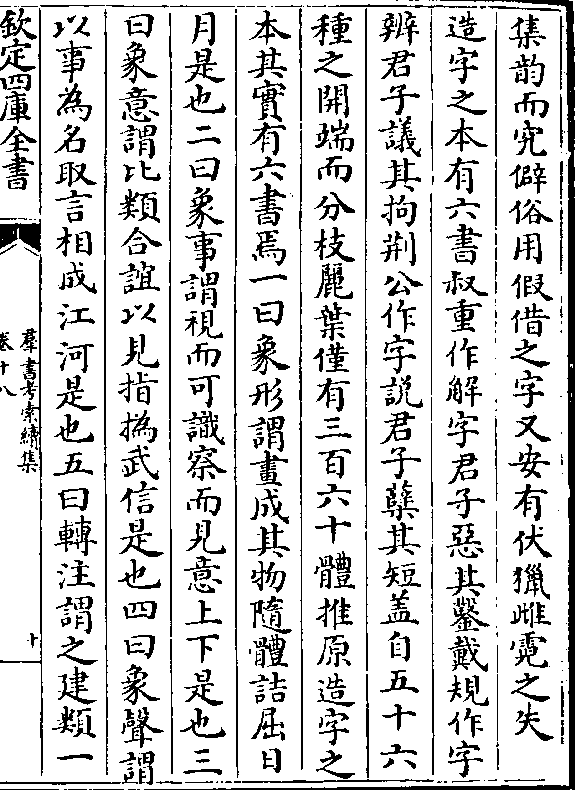 集韵而究僻俗用假借之字又安有伏獵雌霓之失
造字之本有六書叔重作解字君子惡其鑿戴規作字
辨君子議其拘荆公作字説君子藥其短盖自五十六
種之開端而分枝麗葉僅有三百六十體推原造字之
本其實有六書焉一曰象形謂畫成其物隨體詰屈日
月是也二曰象事謂視而可識察而見意上下是也三
曰象意謂比類合誼以見指撝武信是也四曰象聲謂
以事為名取言相成江河是也五曰轉注謂之建類一
欽定四庫全書
羣書考索續集
卷十八
十